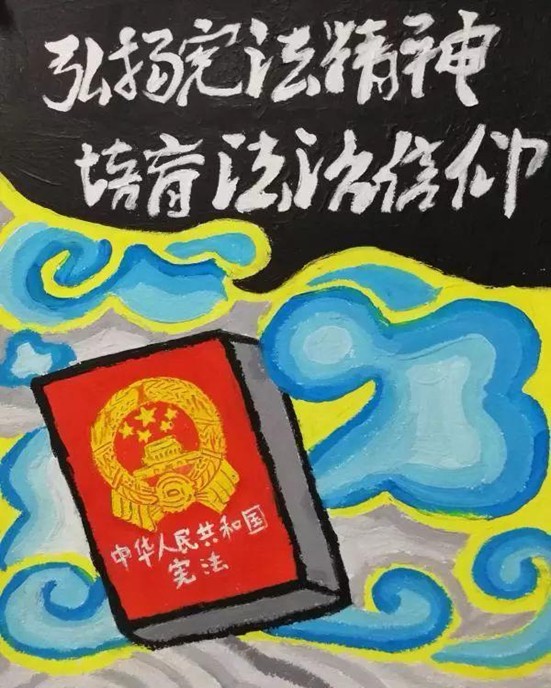 弘扬宪法精神
培育法治信仰
中华人民共和国
宪法